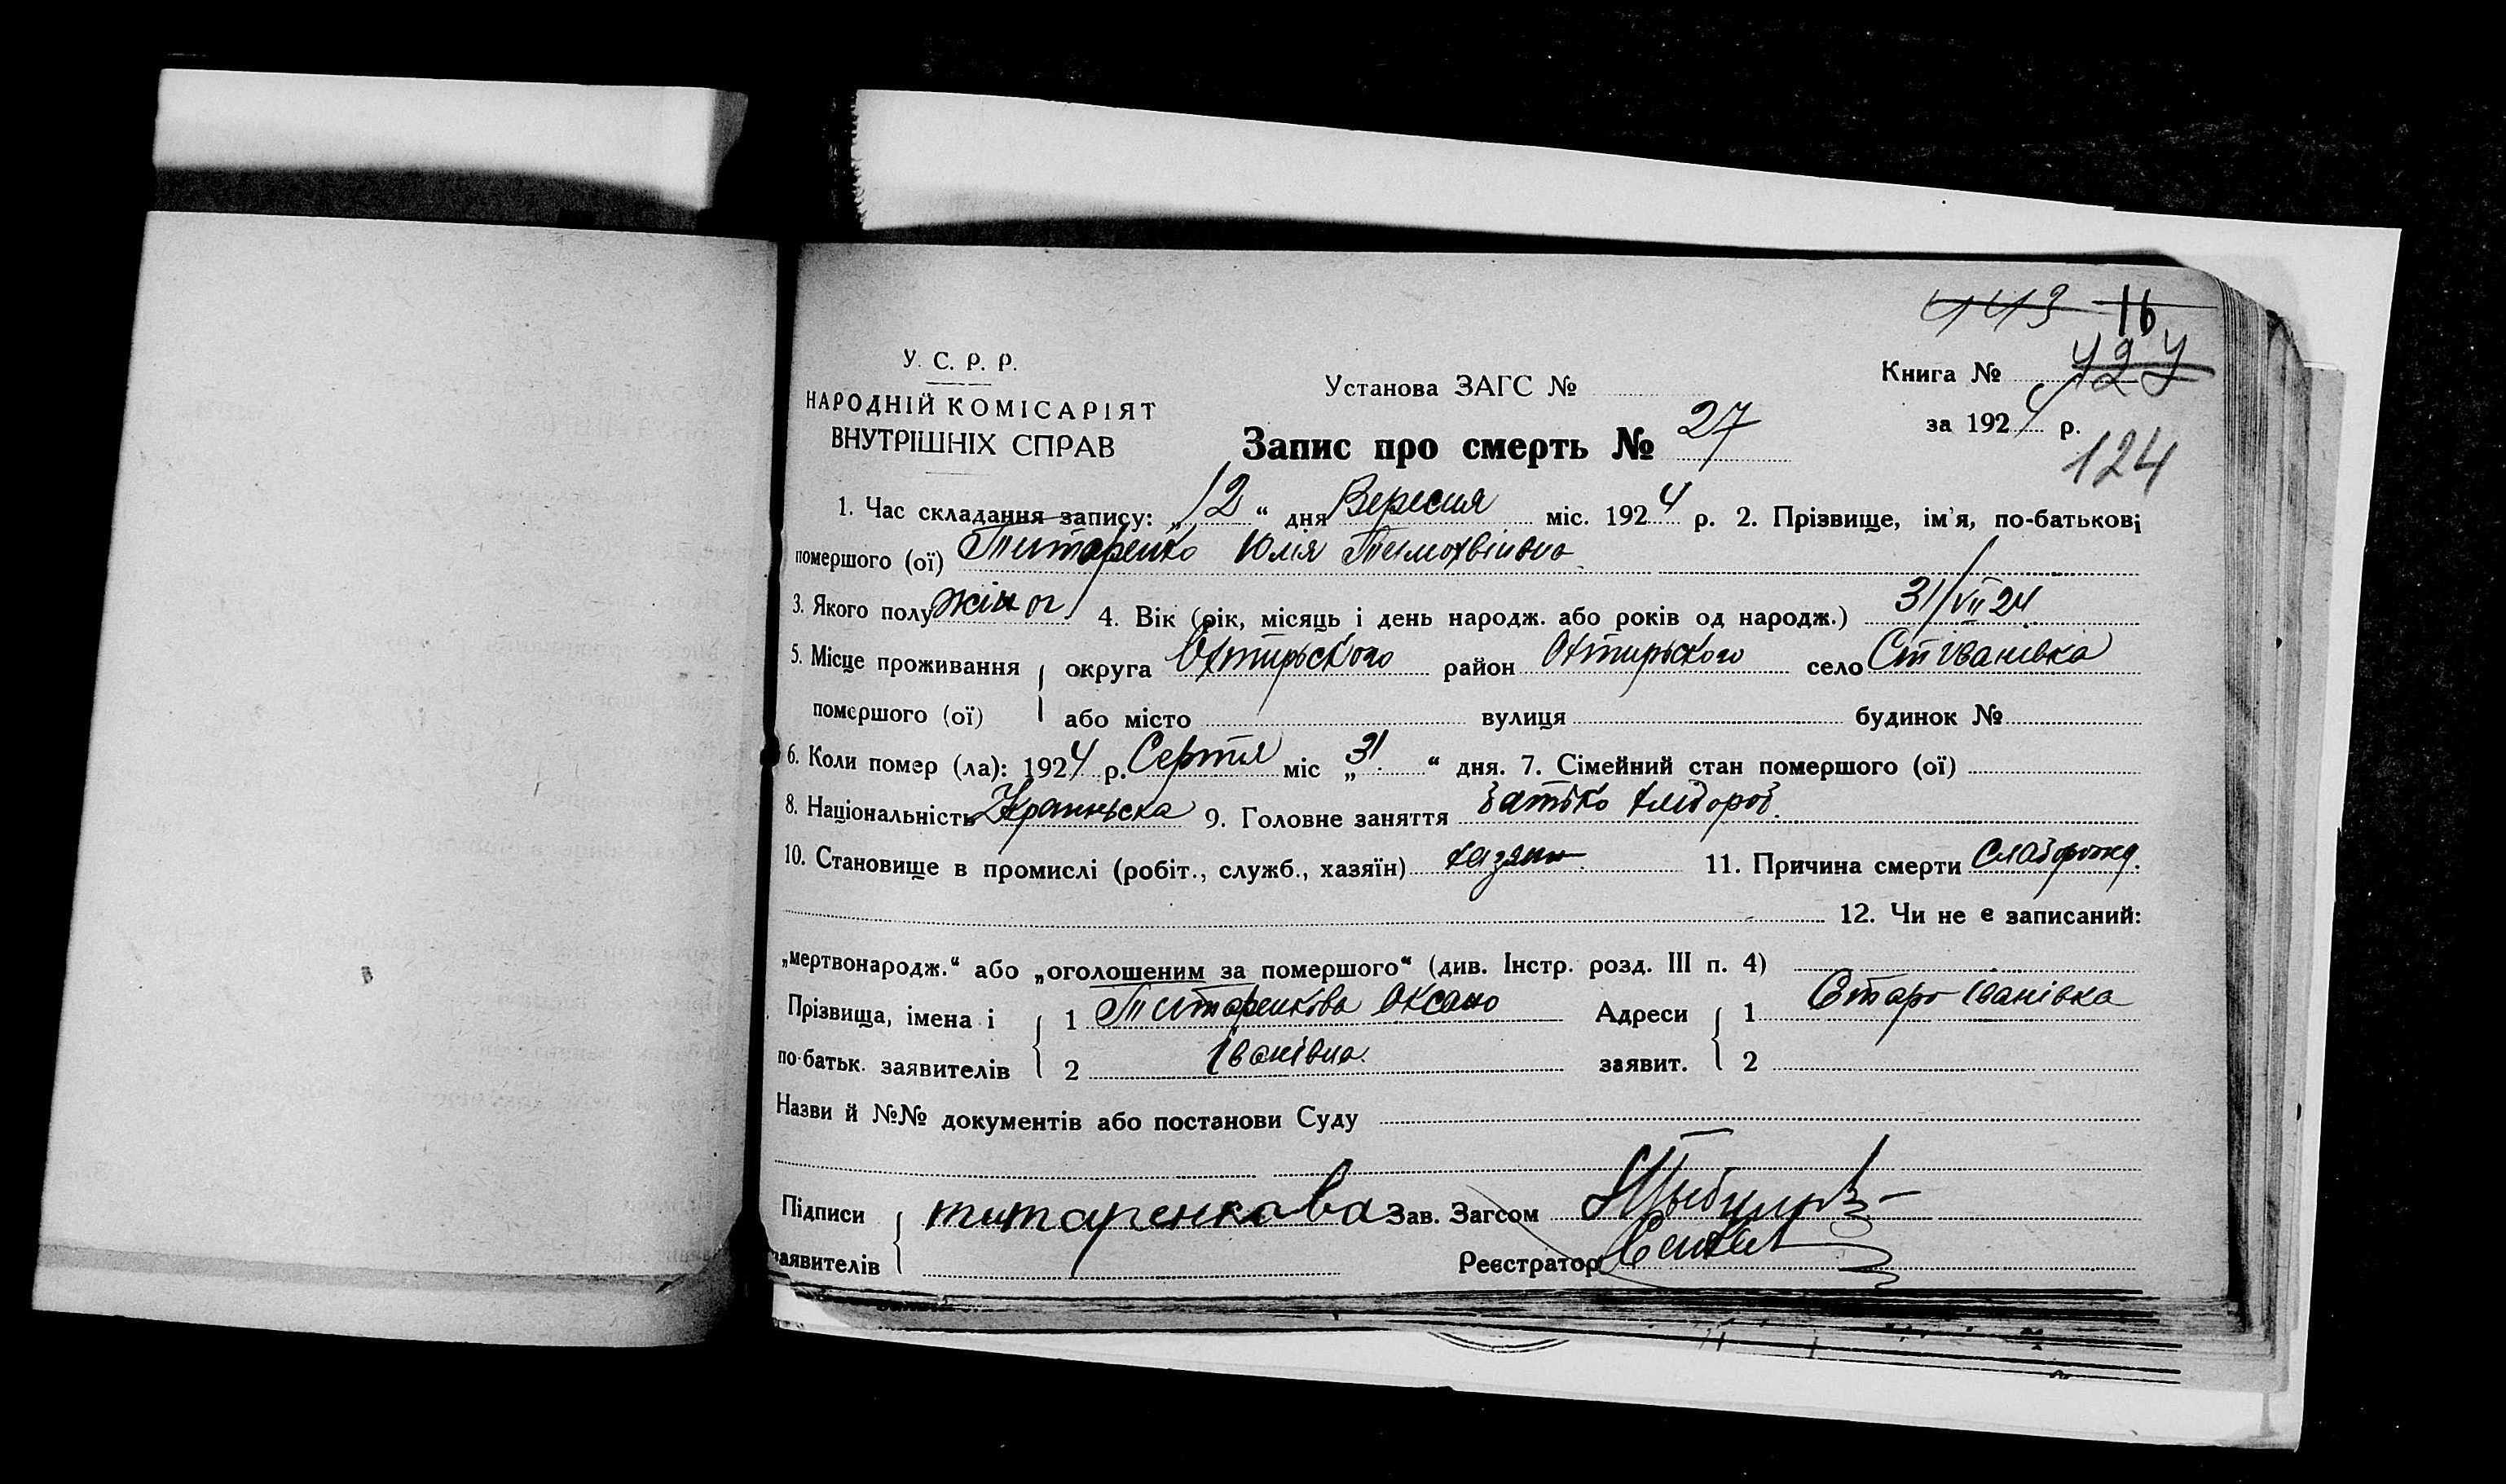 443 16
У. С. Р. Р.
НАРОДНІЙ КОМІСАРІЯТ
ВНУТРІШНІХ СПРАВ
Установа ЗАГС №
Книга № 424
за 1924 р.
124
Запис про смерть № 27
1. Час складання запису: „12“ дня Вересня міс. 1924 р. 2. Прізвище, ім'я, по-батькові
помершого (ої) Титаренко Юлія Тимохвіівна
3. Якого полу жіноч 4. Вік (рік, місяць і день народж. або років од народж.) 31/VII 24
5. Місце проживання округа Охтирського район Охтирського село Ст Іванівка
помершого (ої) або місто вулиця будинок №
6. Коли помер (ла): 1924 р. Серпня міс „31“ дня. 7. Сімейний стан помершого (ої)
8. Національність Украіньска 9. Головне заняття батько хлібороб.
10. Становище в промислі (робіт., служб., хазяїн) хазяин. 11. Причина смерти Слаборожд.
12. Чи не є записаний:
„мертвонародж.“ або „оголошеним за помершого“ (див. Інстр. розд. III п. 4)
Прізвища, імена і 1 Титаренкова Оксана Адреси 1 Старо Іванівка
по-батьк. заявителів 2 Іванівна. заявит. 2
Назви й №№ документів або постанови Суду
Підписи титаренкова Зав. Загсом
заявителів Реєстратор